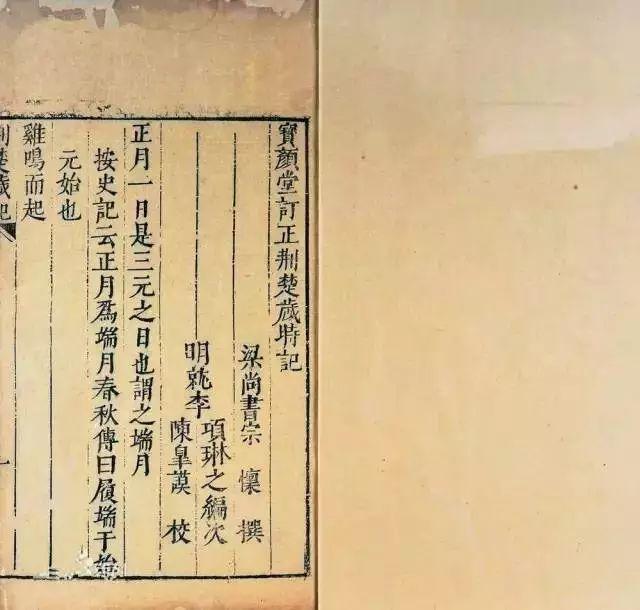 寶顏堂訂正荆楚歲時記
梁尚書宗懍撰
明 項琳之編次
陳臯謨校
正月一日是三元之日也謂之端月
按史記云正月爲端月春秋傳曰履端于始
元始也
雞鳴而起
荆楚歲記
一